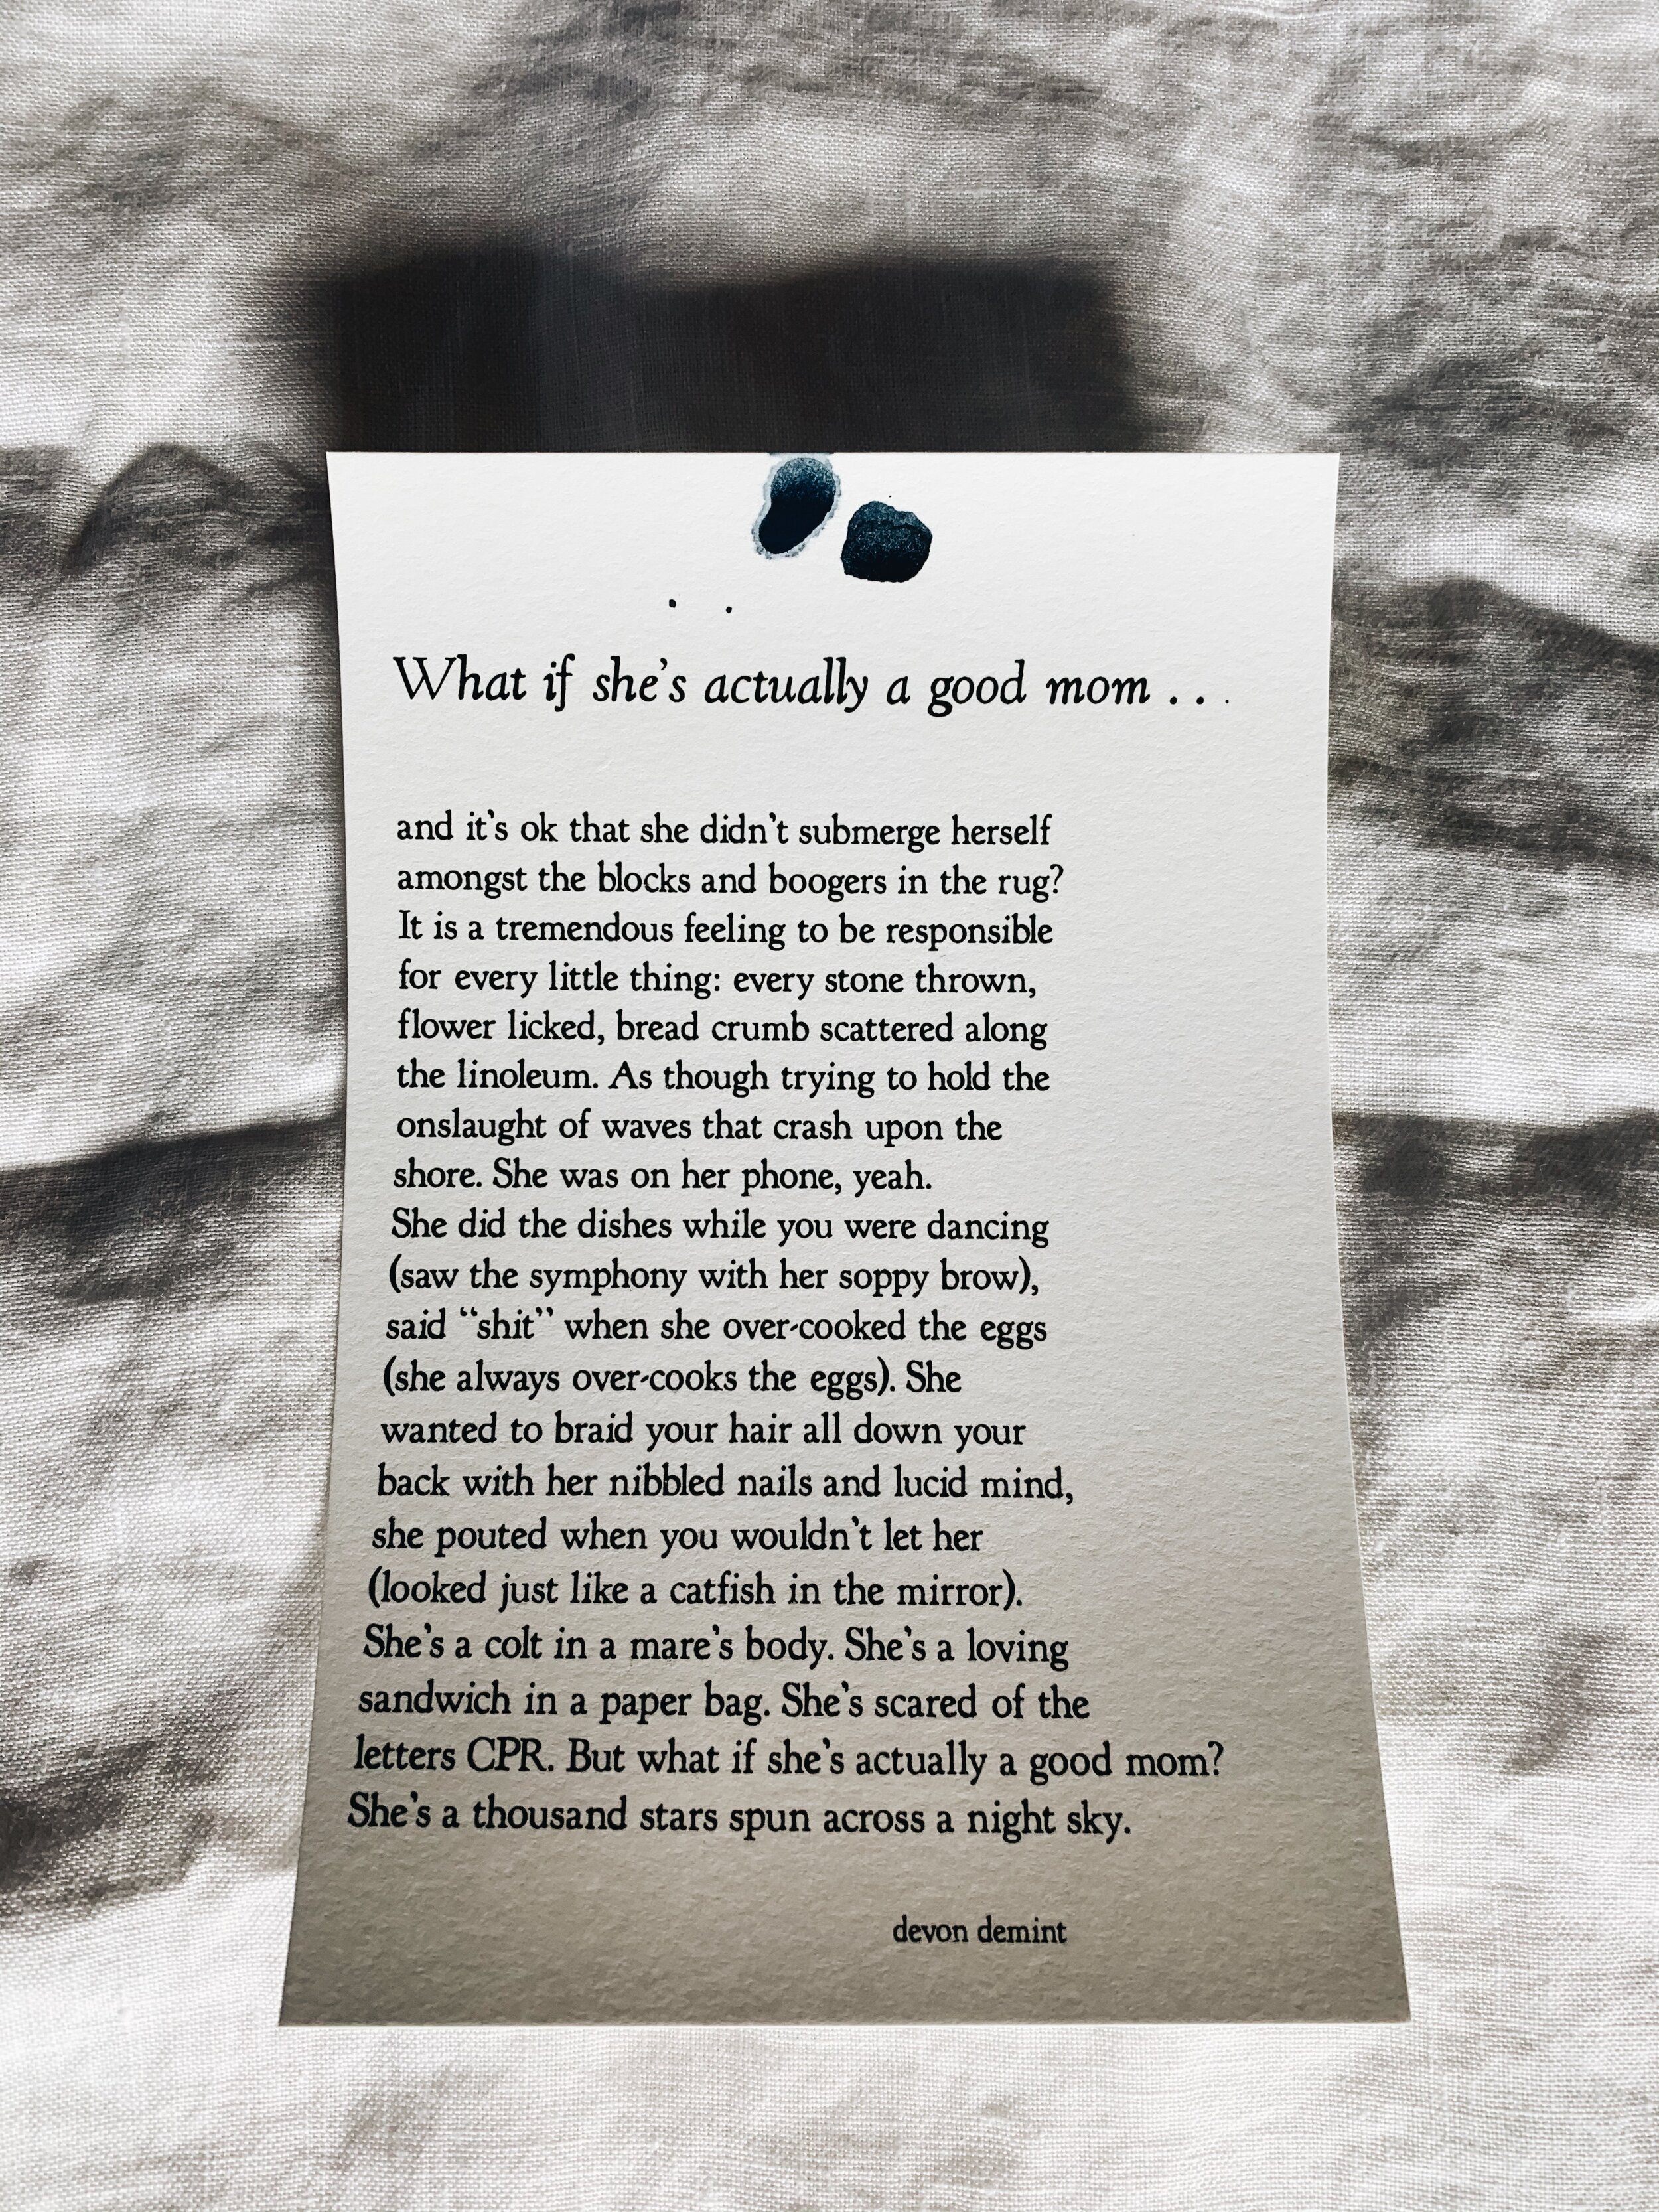 What if she's actually a good mom . . .
and it's ok that she didn't submerge herself
amongst the blocks and boogers in the rug?
It is a tremendous feeling to be responsible
for every little thing: every stone thrown,
flower licked, bread crumb scattered along
the linoleum. As though trying to hold the
onslaught of waves that crash upon the
shore. She was on her phone, yeah.
She did the dishes while you were dancing
(saw the symphony with her soppy brow),
said “shit” when she over-cooked the eggs
(she always over-cooks the eggs). She
wanted to braid your hair all down your
back with her nibbled nails and lucid mind,
she pouted when you wouldn't let her
(looked just like a catfish in the mirror).
She's a colt in a mare's body. She's a loving
sandwich in a paper bag. She's scared of the
letters CPR. But what if she's actually a good mom?
She's a thousand stars spun across a night sky.
devon demint